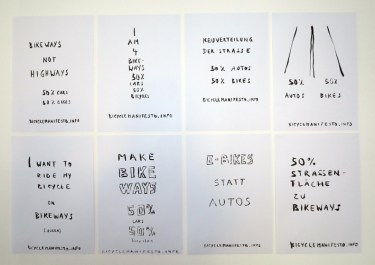 BIKEWAYS
NOT
HIGHWAYS
50% CARS
50% BIKES
BICYCLEMANIFESTO.INFO
I
AM
4
BIKE-
WAYS
50%
CARS
50%
BICYCLES
BICYCLEMANIFESTO.INFO
NEUVERTEILUNG
DER STRASSE
50% AUTOS
50% BIKES
BICYCLEMANIFESTO.INFO
50% 50%
AUTOS BIKES
BICYCLEMANIFESTO.INFO
I WANT TO
RIDE MY
BICYCLE
ON
BIKEWAYS
BICYCLEMANIFESTO.INFO
MAKE
BIKE
WAYS
50%
CARS
50%
BICYCLEMANIFESTO.INFO
E-BIKES
STATT
AUTOS
BICYCLEMANIFESTO.INFO
50%
STRASSEN-
FLÄCHE
ZU
BIKEWAYS
BICYCLEMANIFESTO.INFO